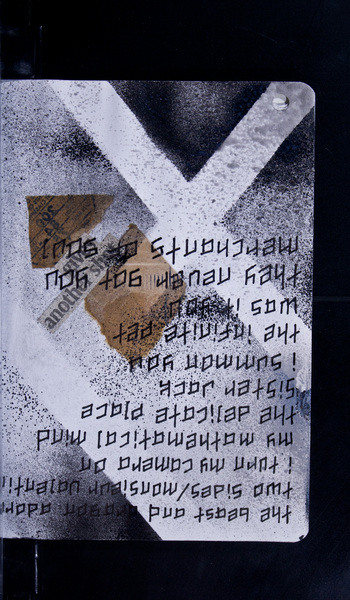 the beast and dragon ador
two sides/monsieur valenti
i turn my camera on
my mathematical mind
the delicate place
sister jack
i summon you
the infinite pet
was it you
they never got you
merchants of soul
another